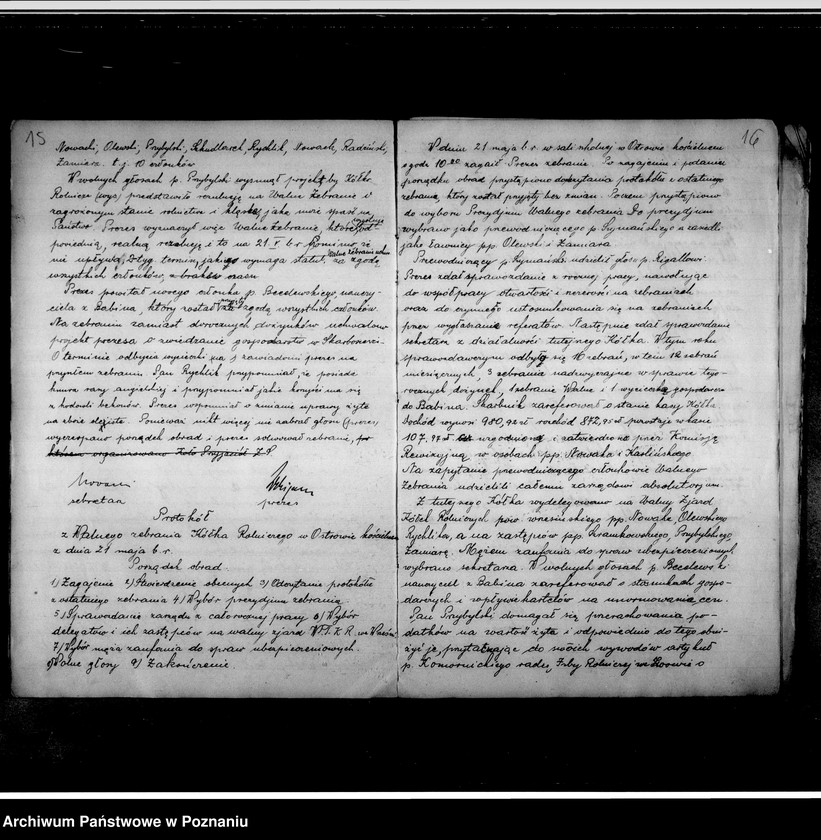 15
Nowacki, Olewski, Przybylski, Schudlerech, Rychlik, Nowack, Radziński,
Zamiara. t.j. 10 członków
W wolnych głosach p. Przybylski wysunął projekt by Kółko
Rolnicze (wys) przedstawiło rezolucję na Walne Zebranie o
zagrożonym stanie rolnictwa i klęskę, jaka może spaść na
Państwo. Prezes wyznaczył więc Walne Zebranie, które
powiednią, realną rezolucję i to na 21 V b.r. Pomimo, że
nie upływa 2 tyg. termin, jakiego wymaga statut, za zgodą
wszystkich członków z braku czasu
Prezes powitał nowego członka p. Becelewskiego nauczy-
ciela z Babina, który został przyjęty za zgodą wszystkich członków.
Na zebraniu zamiast dorocznych dożynków uchwalono
projekt prezesa o zwiedzanie gospodarstw w Skarboszewie.
O terminie odbycia wycieczki zawiadomi prezes na
przyszłem zebraniu. Pan Rychlik przypomniał, że posiada
knura rasy angielskiej i przypomniał jakie korzyści ma się
z hodowli bekonów. Prezes wspomniał o zmianie uprawy żyta
na zboże. Ponieważ nikt więcej nie zabrał głosu (prezes)
wyczerpano porządek obrad i prezes solwował zebranie, po
którem organizowano Koło Przyjaciół Z.S.
Nowacki
sekretarz prezes
Protokół
z Walnego zebrania Kółka Rolniczego w Ostrowie kościelnem
z dnia 21 maja b.r.
Porządek obrad.
1) Zagajenie 2) Stwierdzenie obecnych 3) Odczytanie protokółu
z ostatniego zebrania 4) Wybór prezydjum zebrania
5) Sprawozdanie zarządu z całorocznej pracy 6) Wybór
delegatów i ich zastępców na walny zjazd W.T.K.R. we Wrześni
7) Wybór męża zaufania do spraw ubezpieczeniowych.
8) Wolne głosy 9) Zakończenie
16
W dniu 21 maja b.r. w sali szkolnej w Ostrowie kościelnem
o godz 10 20 zagaił Prezes zebranie. Po zagajeniu i podaniu
porządku obrad przystąpiono do czytania protokółu z ostatniego
zebrania, który został przyjęty bez zmian. Poczem przystąpiono
do wyboru Prezydjum Walnego zebrania. Do prezydjum
wybrano jako przewodniczącego p. Rymańskiego a
jako ławnicy pp. Olewski i Zamiara.
Przewodniczący p. Rymański udzielił głosu p. Rigallowi.
Prezes zdał sprawozdanie z rocznej pracy, nawołując
do współpracy otwartości i szczerości na zebraniach
oraz do czynnego ustosunkowania się na zebraniach
przez wygłaszanie referatów. Następnie zdał sprawozdanie
sekretarz z działalności tutejszego Kółka. W tym roku
sprawozdawczym odbyły się 16 zebrań, w tem 12 zebrań
miesięcznych, 3 zebrania nadzwyczajne w sprawie tego-
rocznych dożynek, 1 zebranie Walne i 1 wycieczka gospodarcza
do Babina. Skarbnik zareferował o stanie kasy Kółka.
Dochód wynosi 980,92 zł rozchód 872,95 zł pozostaje w kasie
107.97 zł uzgodniono i zatwierdzono przez Komisję
Rewizyjną w osobach pp. Nowaka i Karlińskiego.
Na zapytanie przewodniczącego członkowie Walnego
Zebrania udzielili całemu zarządowi absolutorjum.
Z tutejszego Kółka wydelegowano na Walny Zjazd
Kółek Rolniczych pow. wrzesińskiego pp. Nowaka, Olewskiego
Rychlika, a na zastępców pp. Przybylskiego,
Zamiarę. Mężem zaufania do spraw ubezpieczeniowych
wybrano sekretarza. W wolnych głosach p. Becelewski
nauczyciel z Babina zareferował o stosunkach gospo-
darczych i wpływie kartelów na unormowanie cen.
Pan Przybylski domagał się przerachowania po-
datków na wartość żyta i odpowiednio do tego obni-
żyć je, przytaczając do swoich wywodów artykuł
p. Komornickiego radcy Izby Rolniczej we Lwowie o
Archiwum Państwowe w Poznaniu